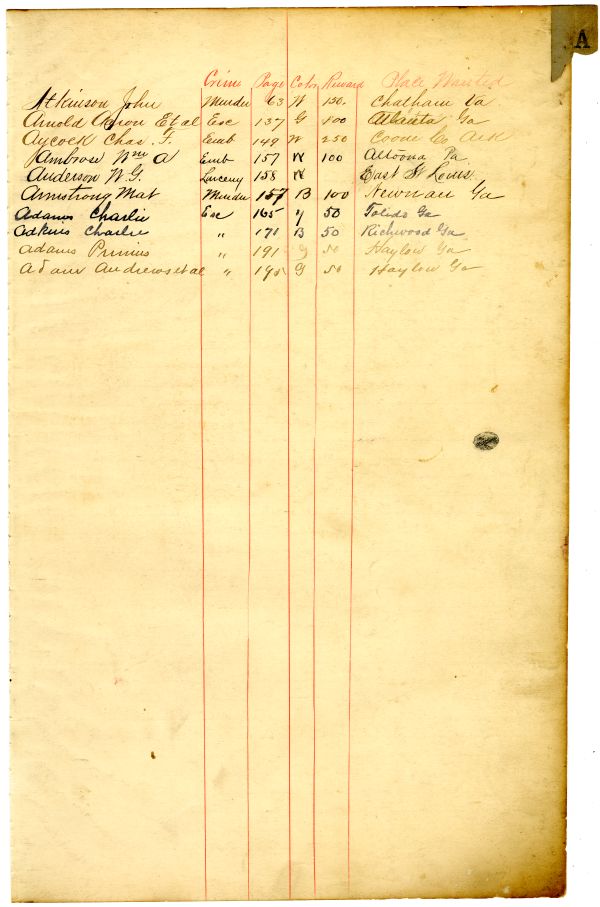 A
Crime Page Color Reward Place Wanted
Atkinson John Murder 63 W 150. Chatham Va
Arnold Aaron Et al Esc 137 G 100 Atlanta Ga
Aycock Chas. T. Emb 149 W 250 Coone Co Ark
Ambrose Wm A Emb 157 W 100 Altoona Pa
Anderson W. G. Larceny 158 W East St Louis
Armstrong Mat Murder 157 B 100 Newnan Ga
Adams Charlie Esc 165 Y 50 Toledo Ga
Adkins Charlie " 171 B 50 Richwood Ga
Adams Primus " 191 G 50 Haylow Ga
Adam Andrews et al " 195 G 50 Haylow Ga